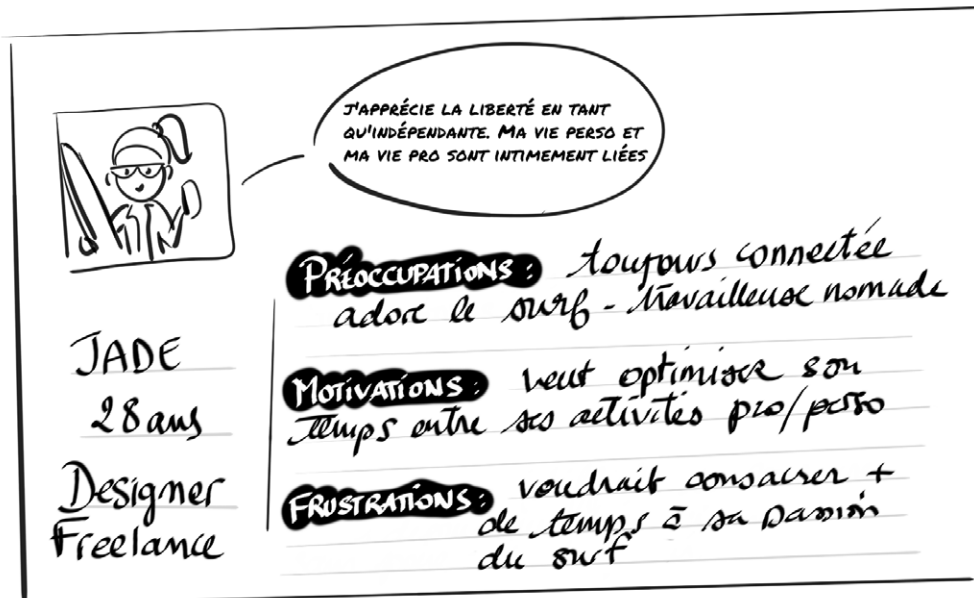 J'APPRÉCIE LA LIBERTÉ EN TANT
QU'INDÉPENDANTE. MA VIE PERSO ET
MA VIE PRO SONT INTIMEMENT LIÉES
JADE
28 ans
Designer
Freelance
PRÉOCCUPATIONS : toujours connectée
adore le surf - travailleuse nomade
MOTIVATIONS : veut optimiser son
temps entre ses activités pro/perso
FRUSTRATIONS : voudrait consacrer +
de temps à sa passion
du surf